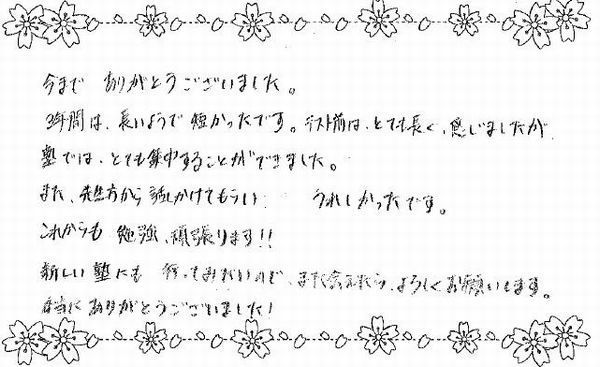 今まで ありがとうございました。
3年間は、長いようで短かったです。テスト前は、とても長く、感じましたが
塾では、とても集中することができました。
また、先生方から話しかけてもらい うれしかったです。
これからも 勉強、頑張ります!!
新しい塾にも 行ってみたいので、また会えたら、よろしくお願いします。
本当にありがとうございました!